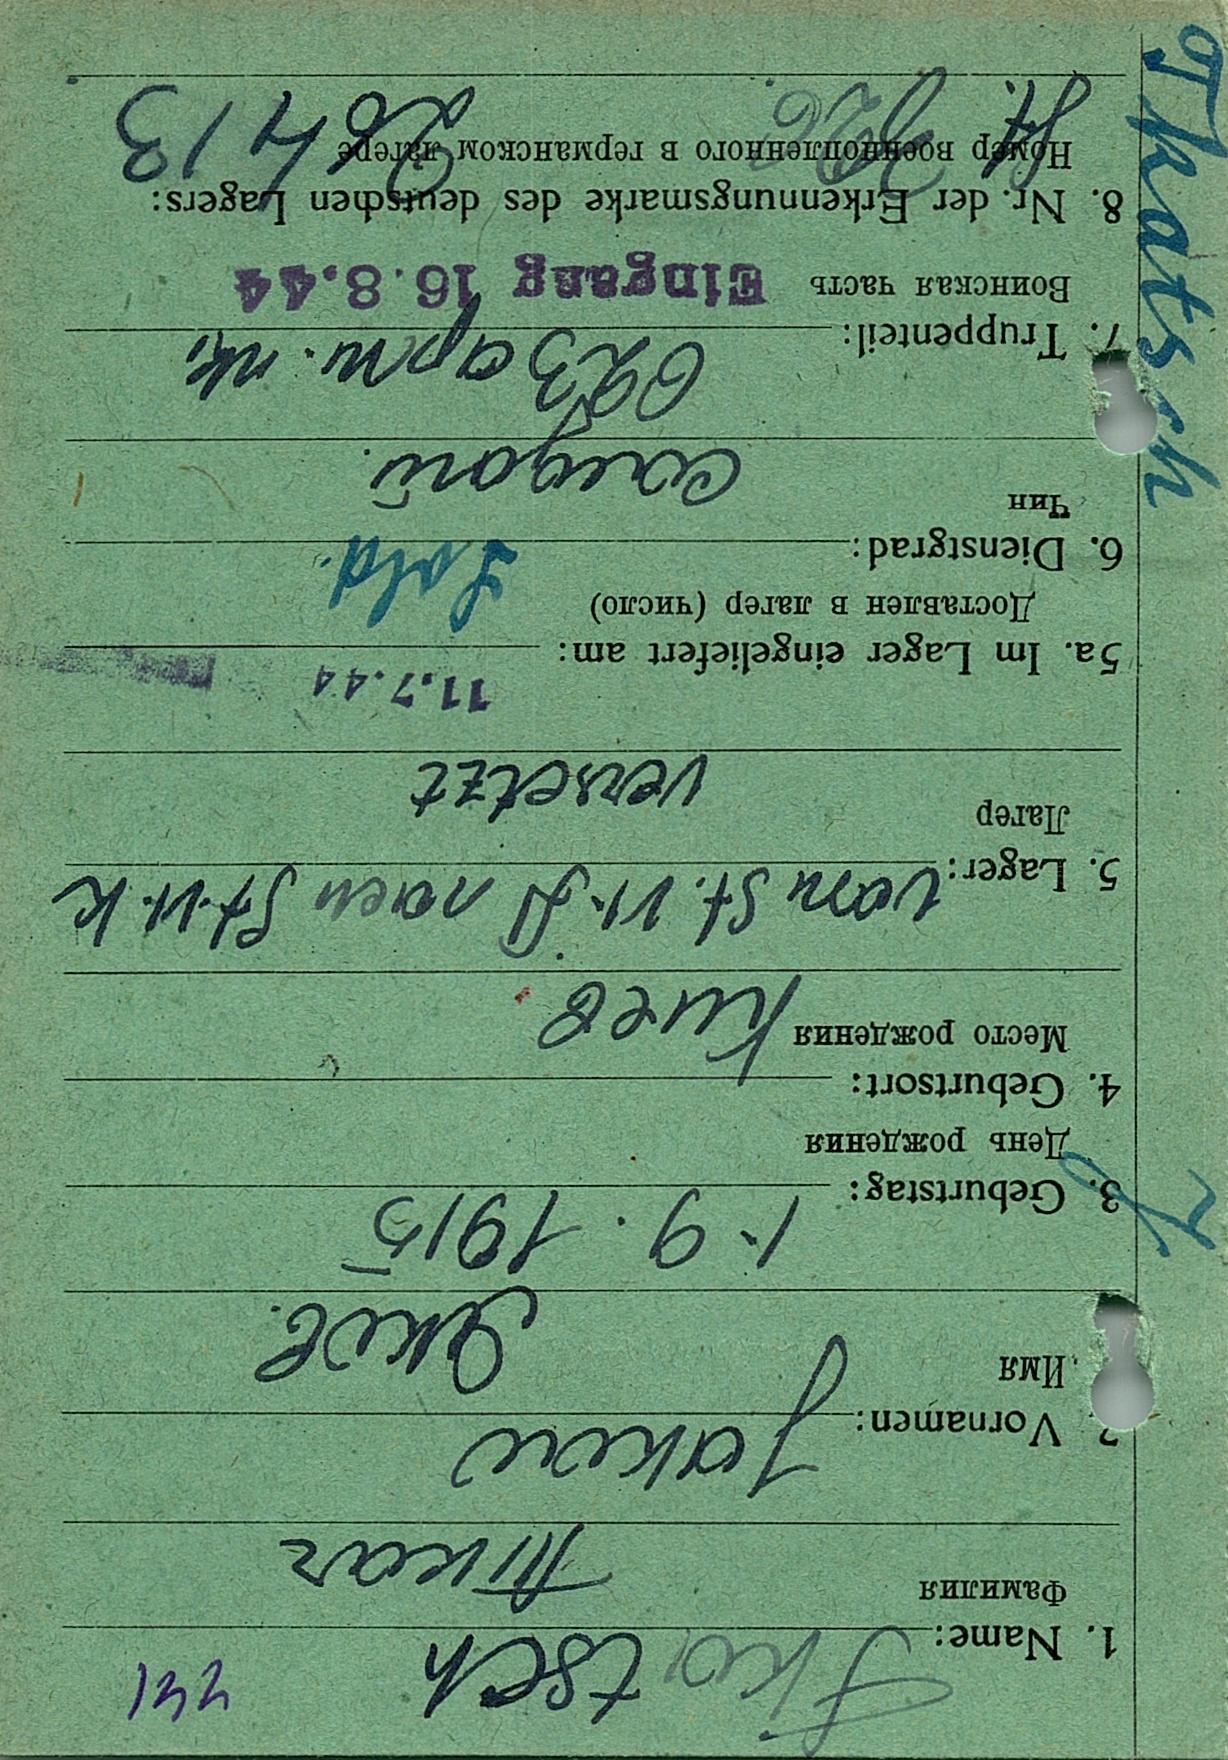 1. Name: Tkatsch
Фамилия Ткач
2. Vornamen: Jakiw
Имя Якив.
3. Geburtstag: 1.9.1915
День рождения
4. Geburtsort:
Место рождения Киев
5. Lager: vom St. VI-A nach St. VI.K
Лагер versetzt
5a. Im Lager eingeliefert am: 11.7.44
Доставлен в лагер (число)
6. Dienstgrad: Sold.
Чин Солдат.
7. Truppenteil: 623
Воинская часть Eingang 16.8.44
8. Nr. der Erkennungsmarke des deutschen Lagers:
Номер военнопленного в германском лагере
St. 326
Tkatsch J